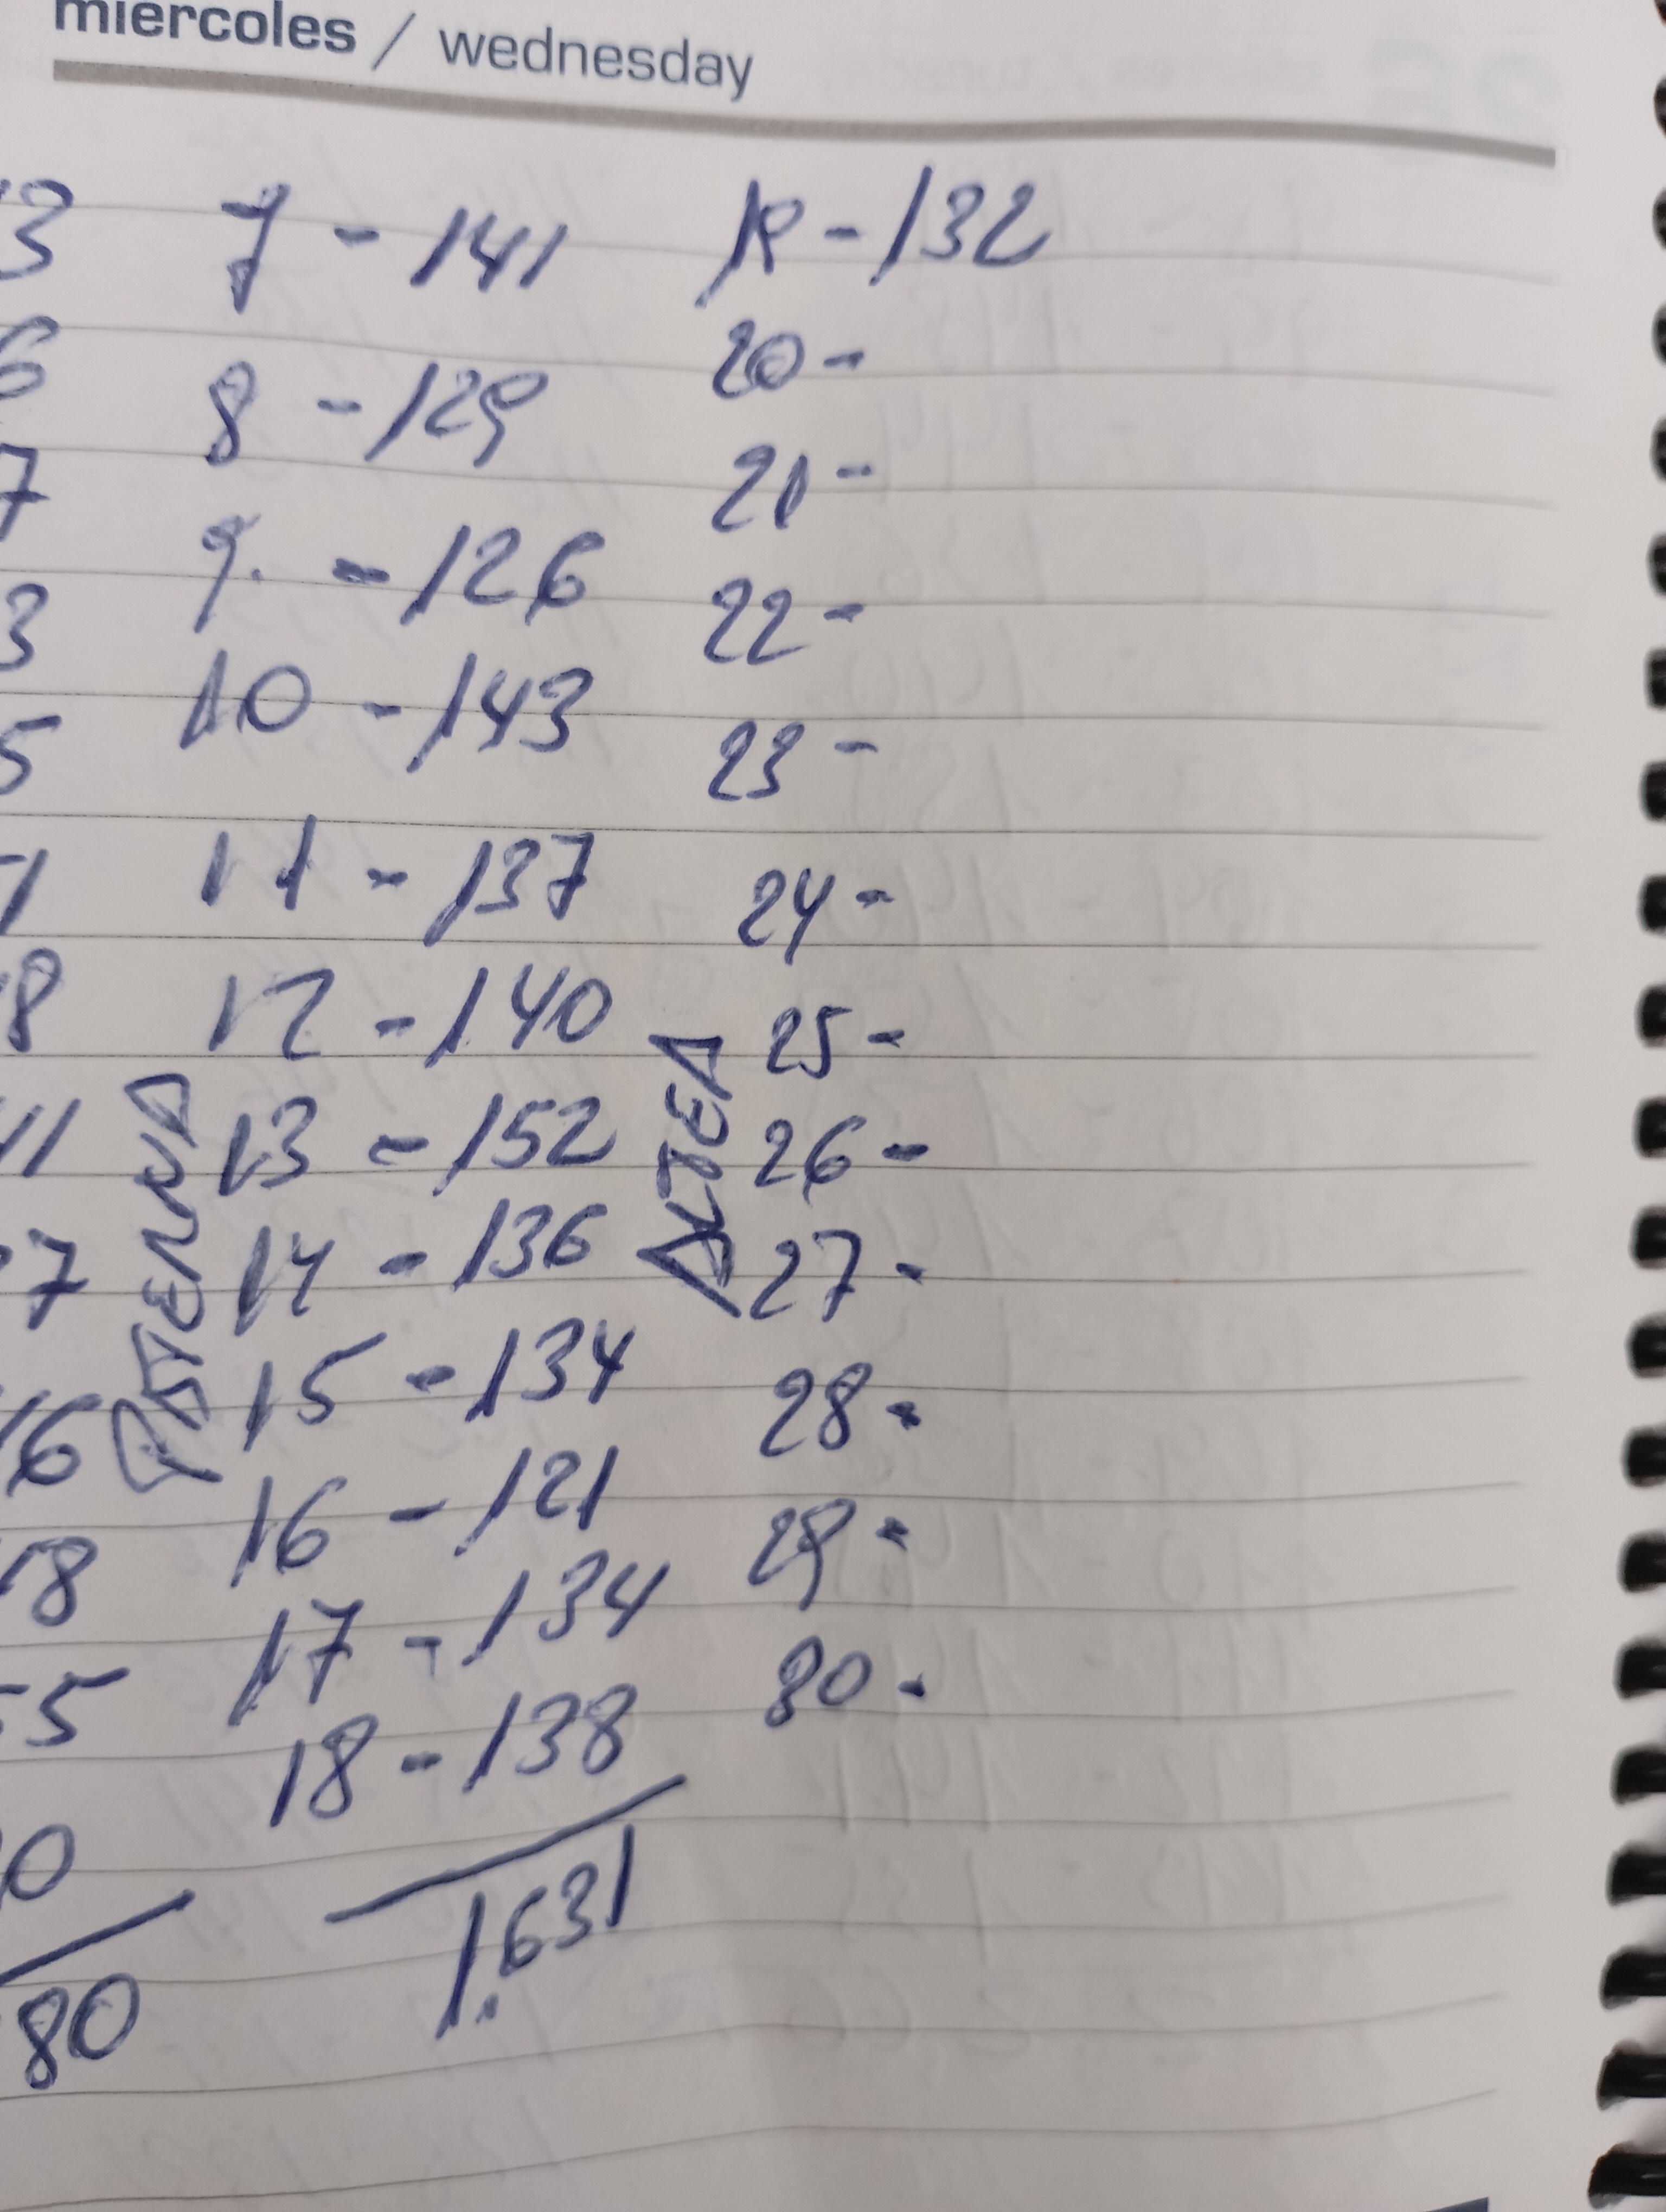 miércoles / wednesday
3 7 - 141 19 - 132
6 8 - 129 20 -
7 9. - 126 21 -
3 10 - 143 22 -
5 11 - 137 23 -
1 12 - 140 24 -
8 13 - 152 25 -
41 14 - 136 26 -
7 15 - 134 27 -
16 16 - 121 28 -
18 17 - 134 29 -
55 18 - 138 30 -
0
80 1.631
ALTEA